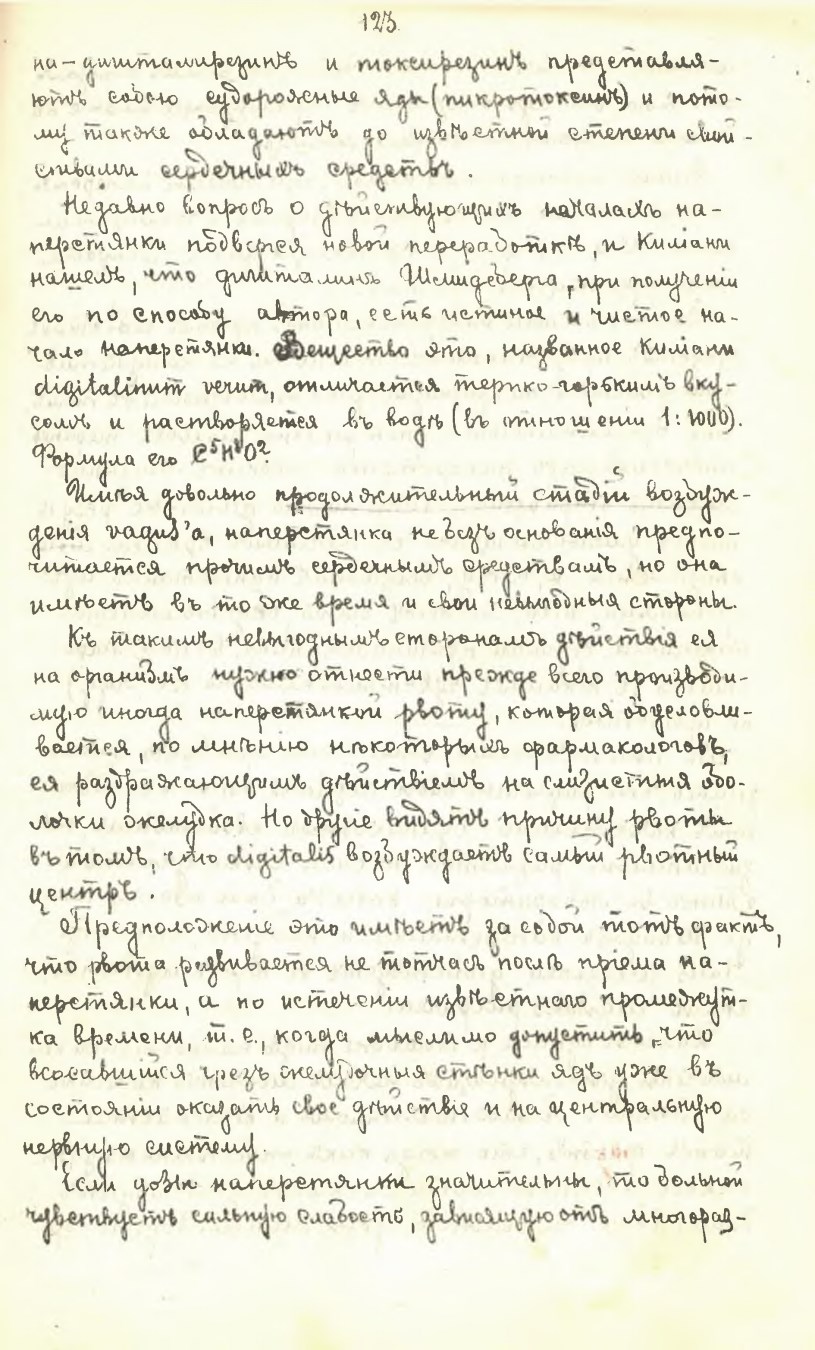 123.
на-дигиталирезинъ и токсирезинъ представля-
ютъ собою судорожные яды (пикротоксинъ) и пото-
му также обладаютъ до извѣстной степени свой-
ствами сердечныхъ средствъ.
Недавно вопросъ о дѣйствующихъ началахъ на-
перстянки подвергся новой переработкѣ, и Киліани
нашелъ, что дигиталинъ Шмидеберга, при полученіи
его по способу автора, есть истиное и чистое на-
чало наперстянки. Вещество это, названное Киліани
digitalinum verum, отличается терпко-горькимъ вку-
сомъ и растворяется въ водѣ (въ отношеніи 1:1000).
Формула его C⁵H⁸O².
Имѣя довольно продолжительный стадій возбуж-
денія vagus'а, наперстянка не безъ основанія предпо-
читается прочимъ сердечнымъ средствамъ, но она
имѣетъ въ то же время и свои невыгодныя стороны.
Къ такимъ невыгоднымъ сторонамъ дѣйствія ея
на организмъ нужно отнести прежде всего производи-
мую иногда наперстянкой рвоту, которая обусловли-
вается, по мнѣнію нѣкоторыхъ фармакологовъ,
ея раздражающимъ дѣйствіемъ на слизистыя обо-
лочки желудка. Но другіе видятъ причину рвоты
въ томъ, что digitalis возбуждаетъ самый рвотный
центръ.
Предположеніе это имѣетъ за собой тотъ фактъ,
что рвота развивается не тотчасъ послѣ пріема на-
перстянки, а по истеченіи извѣстнаго промежут-
ка времени, т. е., когда мыслимо допустить, что
всосавшійся чрезъ желудочныя стѣнки ядъ уже въ
состояніи оказать свое дѣйствіе и на центральную
нервную систему.
Если дозы наперстянки значительны, то больной
чувствуетъ сильную слабость, зависящую отъ многораз-